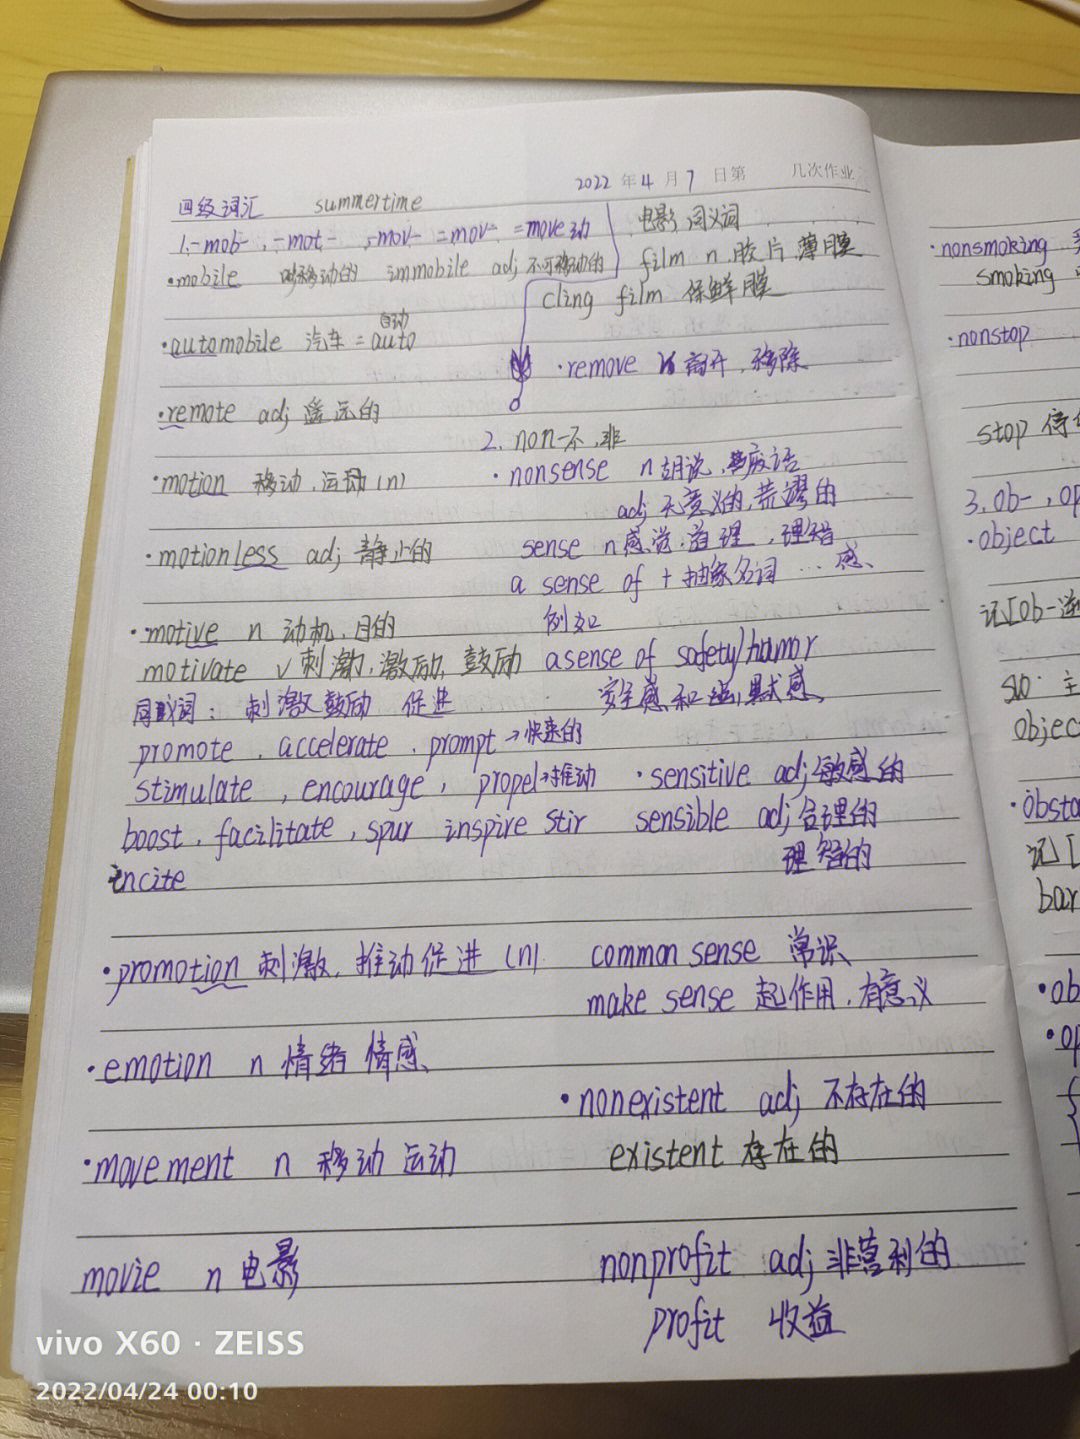 2022 年 4 月 7 日第 几次作业
四级词汇 summertime
1.-mob-, -mot-, -mov- =mov- =move动
·mobile 可移动的 immobile adj 不可移动的
·automobile 汽车 = auto
自动
·remote adj 遥远的
·motion 移动,运动(n)
·motionless adj 静止的
·motive n 动机,目的
motivate v 刺激,激励,鼓励
同义词: 刺激 鼓励 促进
promote, accelerate, prompt→快来的
stimulate, encourage, propel→推动
boost, facilitate, spur inspire stir
incite
·promotion 刺激,推动促进 (n)
·emotion n 情绪 情感
·movement n 移动 运动
movie n 电影
电影 同义词
film n 胶片,薄膜
cling film 保鲜膜
·remove v 离开,移除
2. non-不,非
·nonsense n 胡说,废话
adj 无意义的,荒谬的
sense n 感觉,道理,理智
a sense of + 抽象名词 … 感
例如
a sense of safety/humor
安全感和幽默感
·sensitive adj 敏感的
sensible adj 合理的
理智的
common sense 常识
make sense 起作用,有意义
·nonexistent adj 不存在的
existent 存在的
nonprofit adj 非营利的
profit 收益
·nonsmoking
smoking
·nonstop
stop
3. ob-, op
·object
记[ob-
object
·obsta
记[
bar
·ob
·op
vivo X60 · ZEISS
2022/04/24 00:10